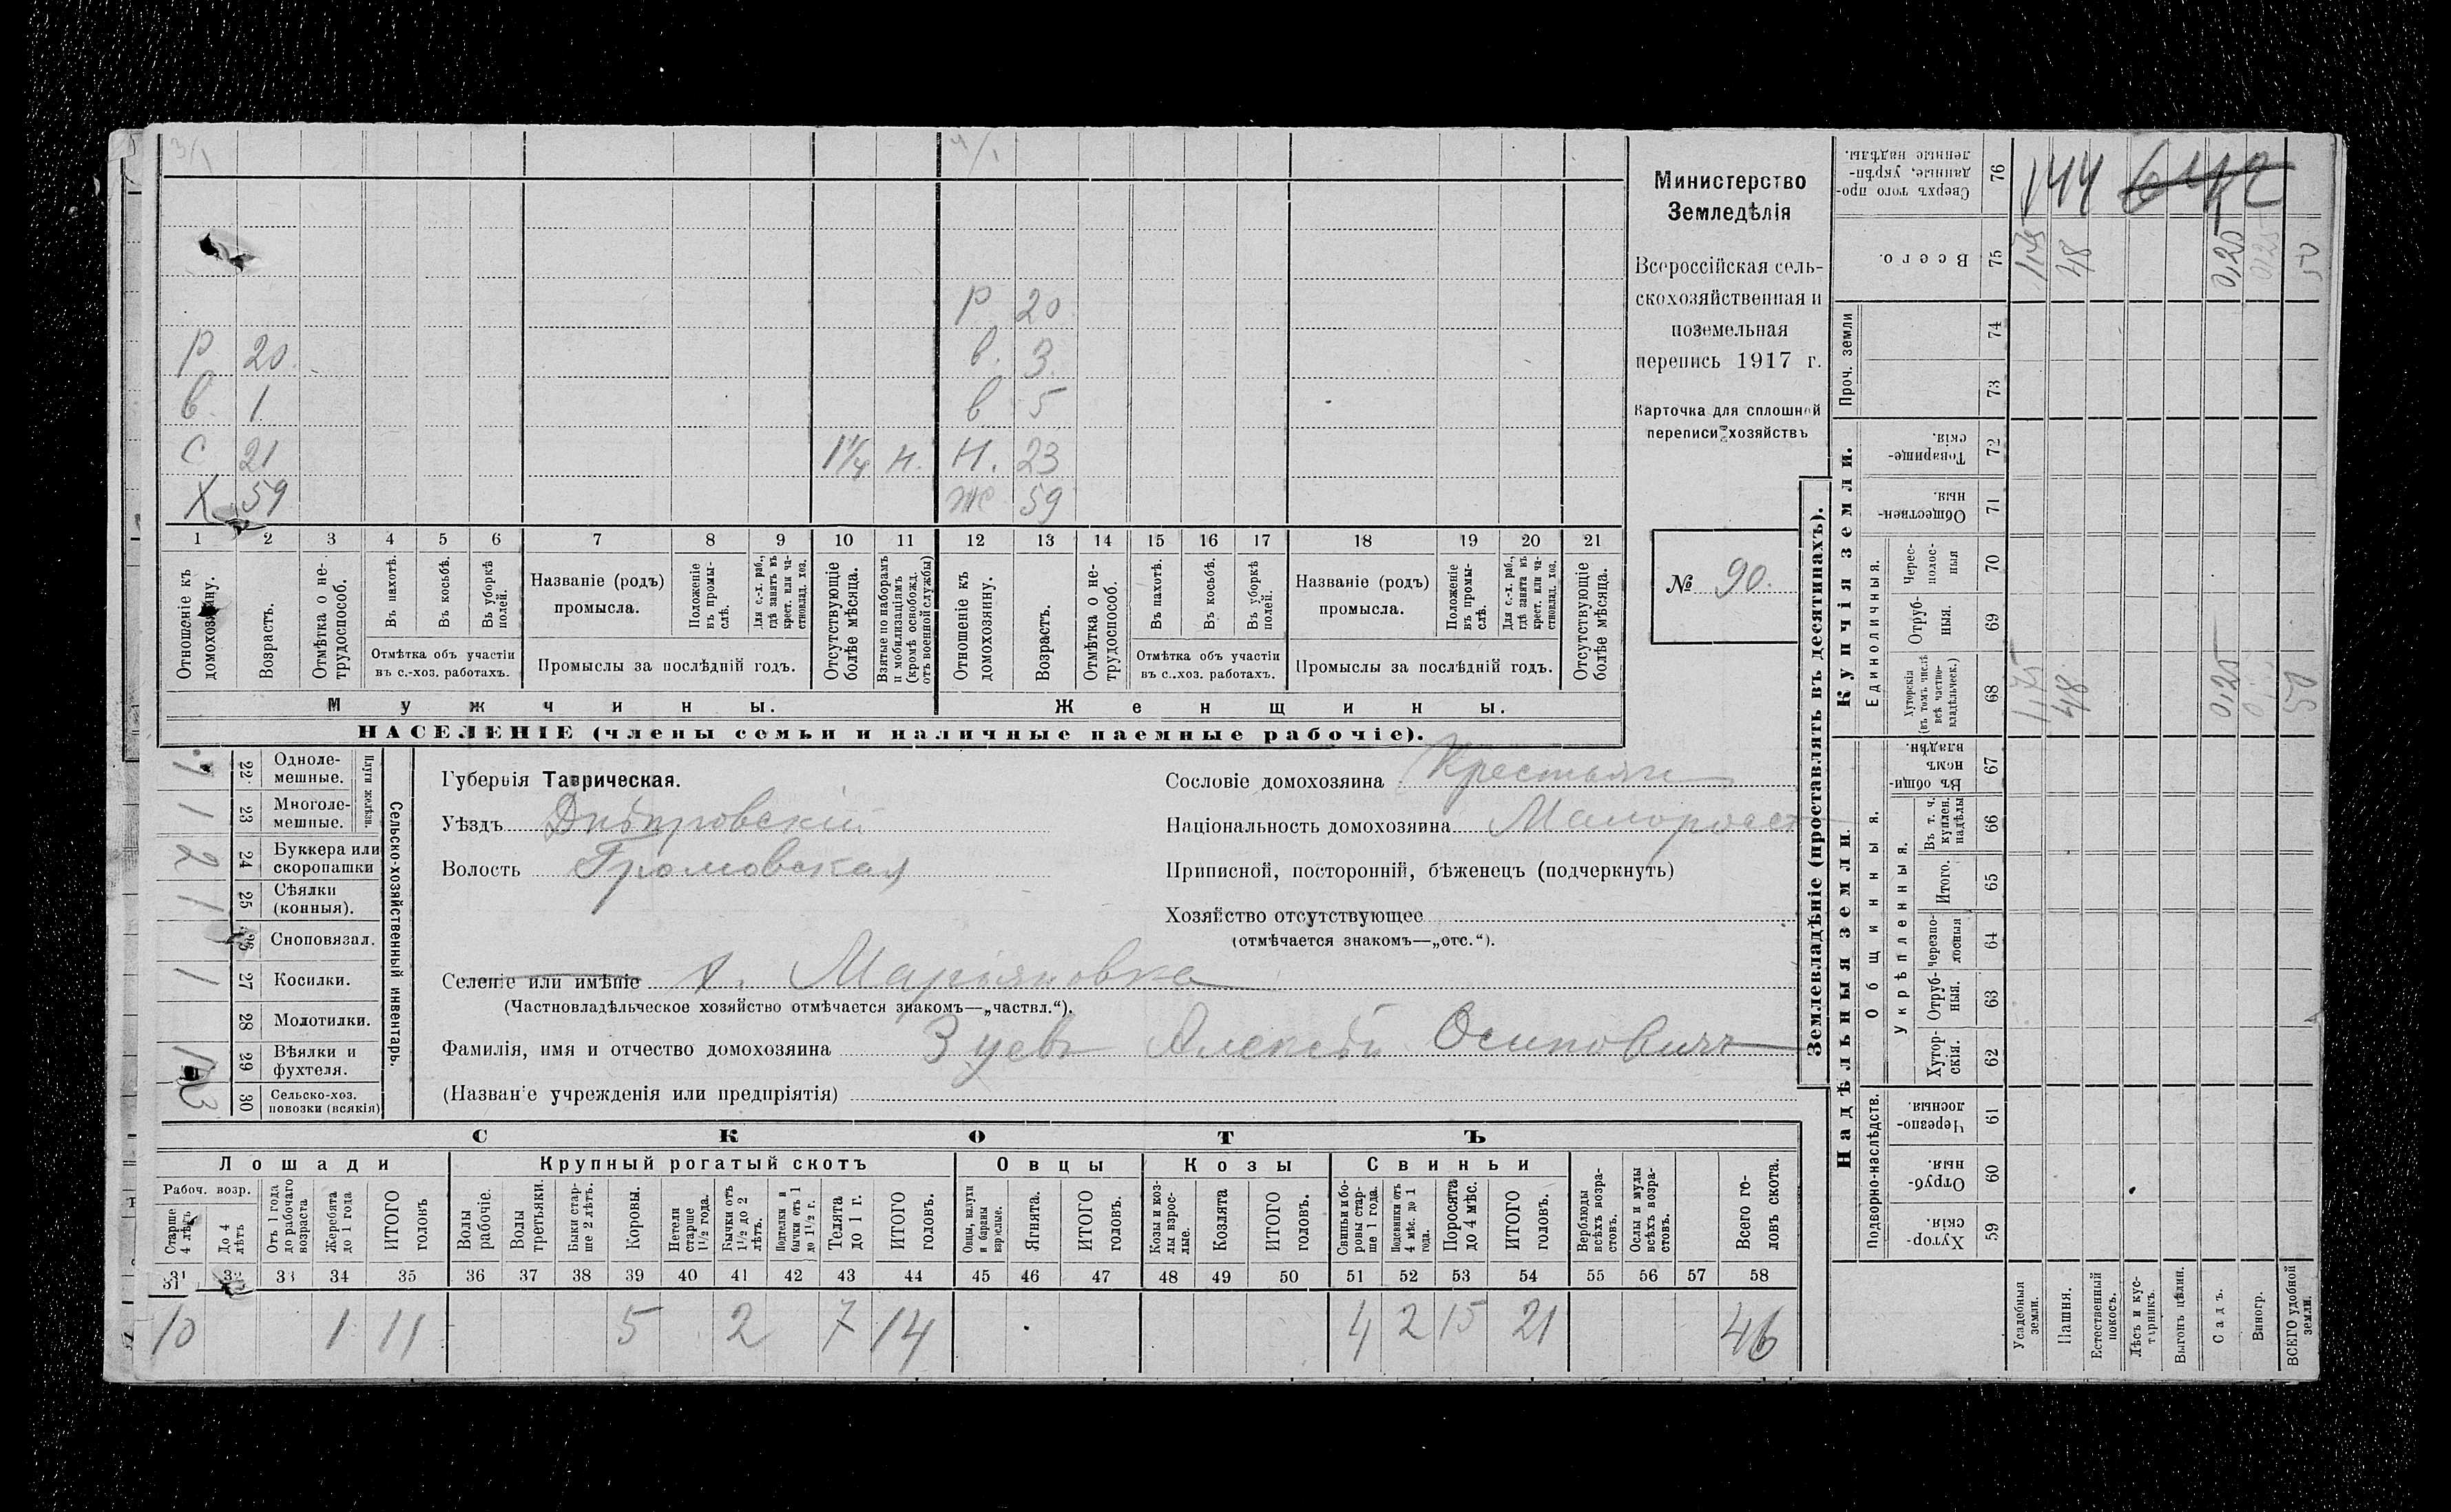 3/1
4/1
Р 20
Р 20. в. 3.
в. 1. в 5
с 21 1 1/4 н. Н. 23
Х 59 Ж 59
1 2 3 4 5 6 7 8 9 10 11 12 13 14 15 16 17 18 19 20 21
Отношеніе къ домохозяину.
Возрастъ.
Отмѣтка о не-трудоспособ.
Въ пахотѣ.
Въ косьбѣ.
Въ уборкѣ полей.
Отмѣтка объ участіи въ с.-хоз. работахъ.
Названіе (родъ) промысла.
Положеніе въ промы-слѣ.
Для с.-х. раб., гдѣ занятъ въ крест. или ча-стновлад. хоз.
Промыслы за послѣдній годъ.
Отсутствующіе болѣе мѣсяца.
Взятые по наборамъ и мобилизаціямъ (кромѣ освобожд. отъ военной службы)
Отношеніе къ домохозяину.
Возрастъ.
Отмѣтка о не-трудоспособ.
Въ пахотѣ.
Въ косьбѣ.
Въ уборкѣ полей.
Отмѣтка объ участіи въ с..хоз. работахъ.
Названіе (родъ) промысла.
Положеніе въ промы-слѣ.
Для с.-х. раб., гдѣ занята въ крест. или ча-стновлад. хоз.
Промыслы за послѣдній годъ.
Отсутствующіе болѣе мѣсяца.
Мужчины.
Женщины.
НАСЕЛЕНІЕ (члены семьи и наличные наемные рабочіе).
Министерство
Земледѣлія
Всероссійская сель-
скохозяйственная и
поземельная
перепись 1917 г.
Карточка для сплошной
переписи хозяйствъ
№ 90.
Одноле-мешные. 22
Многоле-мешные. 23 1
Плуги желѣзн.
Буккера или скоропашки 24 2
Сѣялки (конныя). 25 1
Сноповязал. 26
Косилки. 27 1
Молотилки. 28
Вѣялки и фухтеля. 29 1
Сельско-хоз. повозки (всякія) 30 3
Сельско-хозяйственный инвентарь.
Губернія Таврическая.
Уѣздъ Днѣпровскій
Волость Громовская
Сословіе домохозяина Крестьян
Національность домохозяина Малоросс
Приписной, посторонній, бѣженецъ (подчеркнуть)
Хозяйство отсутствующее
(отмѣчается знакомъ—„отс.“).
Селеніе или имѣніе х. Марьяновка
(Частновладѣльческое хозяйство отмѣчается знакомъ—„частвл.“).
Фамилія, имя и отчество домохозяина Зуевъ Алексѣй Осиповичъ
(Названіе учрежденія или предпріятія)
СКОТЪ
Лошади Крупный рогатый скотъ Овцы Козы Свиньи
Рабоч. возр.
Старше 4 лѣтъ
До 4 лѣтъ
Отъ 1 года до рабочаго возраста
Жеребята до 1 года
ИТОГО головъ
Волы рабочіе.
Волы третьяки.
Быки стар-ше 2 лѣтъ.
Коровы.
Нетели старше 1½ года.
Бычки отъ 1½ до 2 лѣтъ.
Подтелки и бычки отъ 1 до 1½ г.
Телята до 1 г.
ИТОГО головъ.
Овцы, валухи и бараны взрослые.
Ягнята.
ИТОГО головъ.
Козы и коз-лы взрос-лые.
Козлята
ИТОГО головъ.
Свиньи и бо-ровы стар-ше 1 года.
Подсвинки отъ 4 мѣс. до 1 года.
Поросята до 4 мѣс.
ИТОГО головъ.
Верблюды всѣхъ возра-стовъ.
Ослы и мулы всѣхъ возра-стовъ.
Всего го-ловъ скота.
31 32 33 34 35 36 37 38 39 40 41 42 43 44 45 46 47 48 49 50 51 52 53 54 55 56 57 58
10 1 11 5 2 7 14 4 2 15 21 46
Землевладѣніе (проставлять въ десятинахъ).
Надѣльныя земли.
Купчія земли.
Проч. земли
Сверхъ того про-данные, укрѣп-ленные надѣлы. 76
Всего. 75
74
73
Товарище-скія. 72
Обществен-ныя. 71
Единоличныя.
Черес-полос-ныя 70
Отруб-ныя. 69
Хуторскія (въ томъ числѣ всѣ частно-владѣльческ.) 68
Въ общи-номъ владѣн. 67
Общинныя.
Укрѣпленныя.
Въ т. ч. куплен. надѣлы 66
Итого. 65
Черезпо-лосныя 64
Отруб-ныя. 63
Хутор-скія. 62
Подворно-наслѣдств.
Черезпо-лосныя. 61
Отруб-ныя. 60
Хутор-скія. 59
Усадебныя земли.
Пашня.
Естественный покосъ.
Лѣсъ и кус-тарникъ.
Выгонъ цѣлин.
Садъ.
Виногр.
ВСЕГО удобной земли.
144
1,75 48 0,25 50
1,75 48 0,25 50